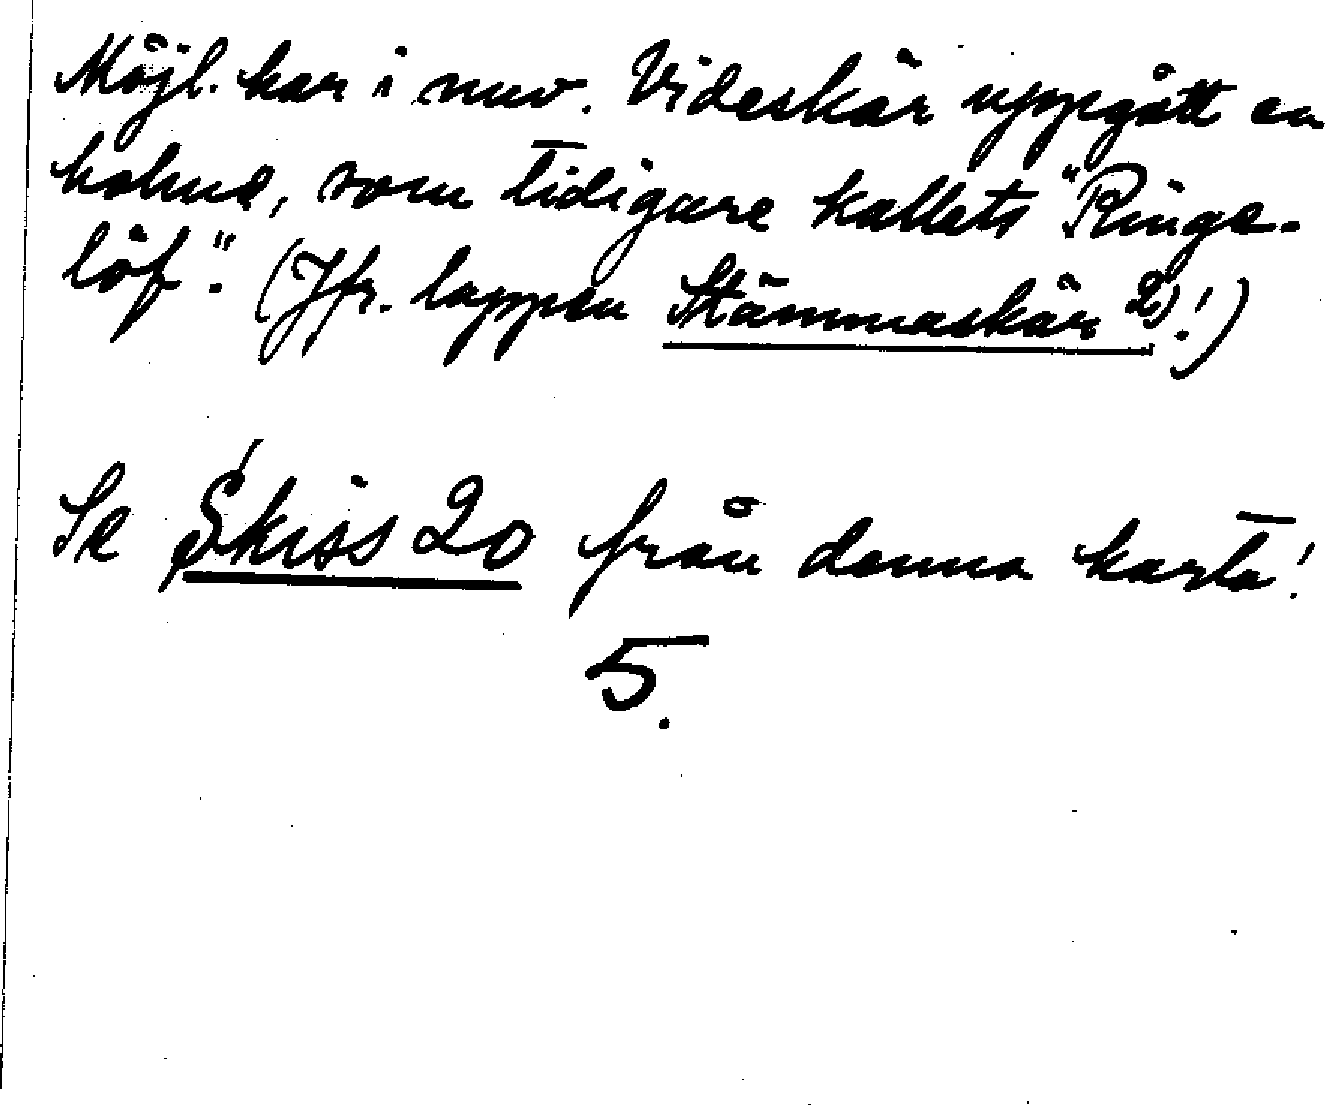 Möjl. har i nuv. Videskär uppgått en
holme, som tidigare kallats "Ringe-
löf". (Jfr. lappen Stämmaskär 2)!)
Se Skiss 20 från denna karta!
5.